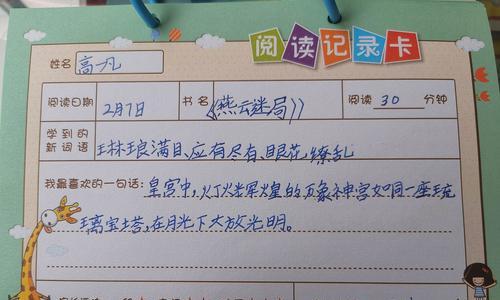 阅读记录卡
姓名 高凡
阅读日期 2月7日 书名 《燕云迷局》 阅读 30 分钟
学到的
新词语 琳琅满目、应有尽有、眼花缭乱
我最喜欢的一句话：皇宫中,灯火辉煌的万象神宫如同一座琉
璃宝塔,在月光下大放光明。